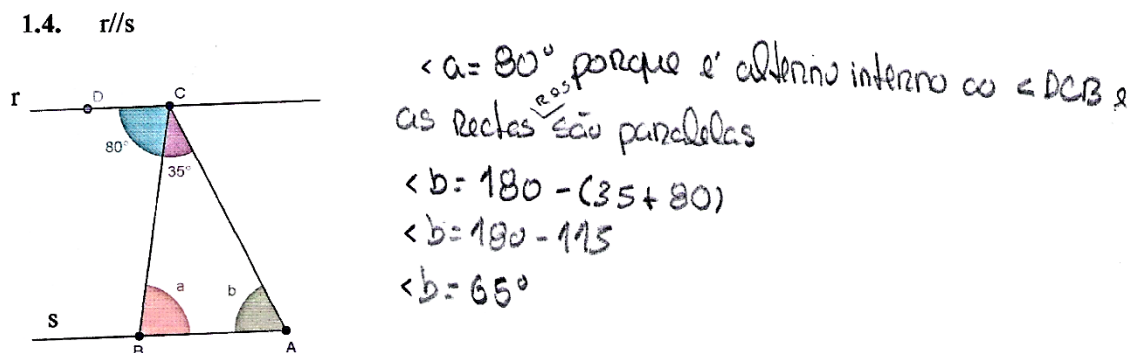 1.4. r//s
r
D
C
80°
35°
a
b
s
B
A
< a = 80° porque é alterno interno ao < DCB e
as Rectas r e s são paralelas
< b = 180 - (35 + 80)
< b = 180 - 115
< b = 65°